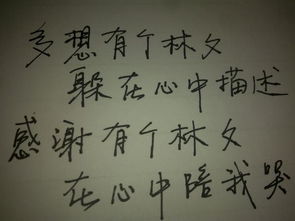 多想有个林夕
躲在心中描述
感谢有个林夕
在心中陪我哭